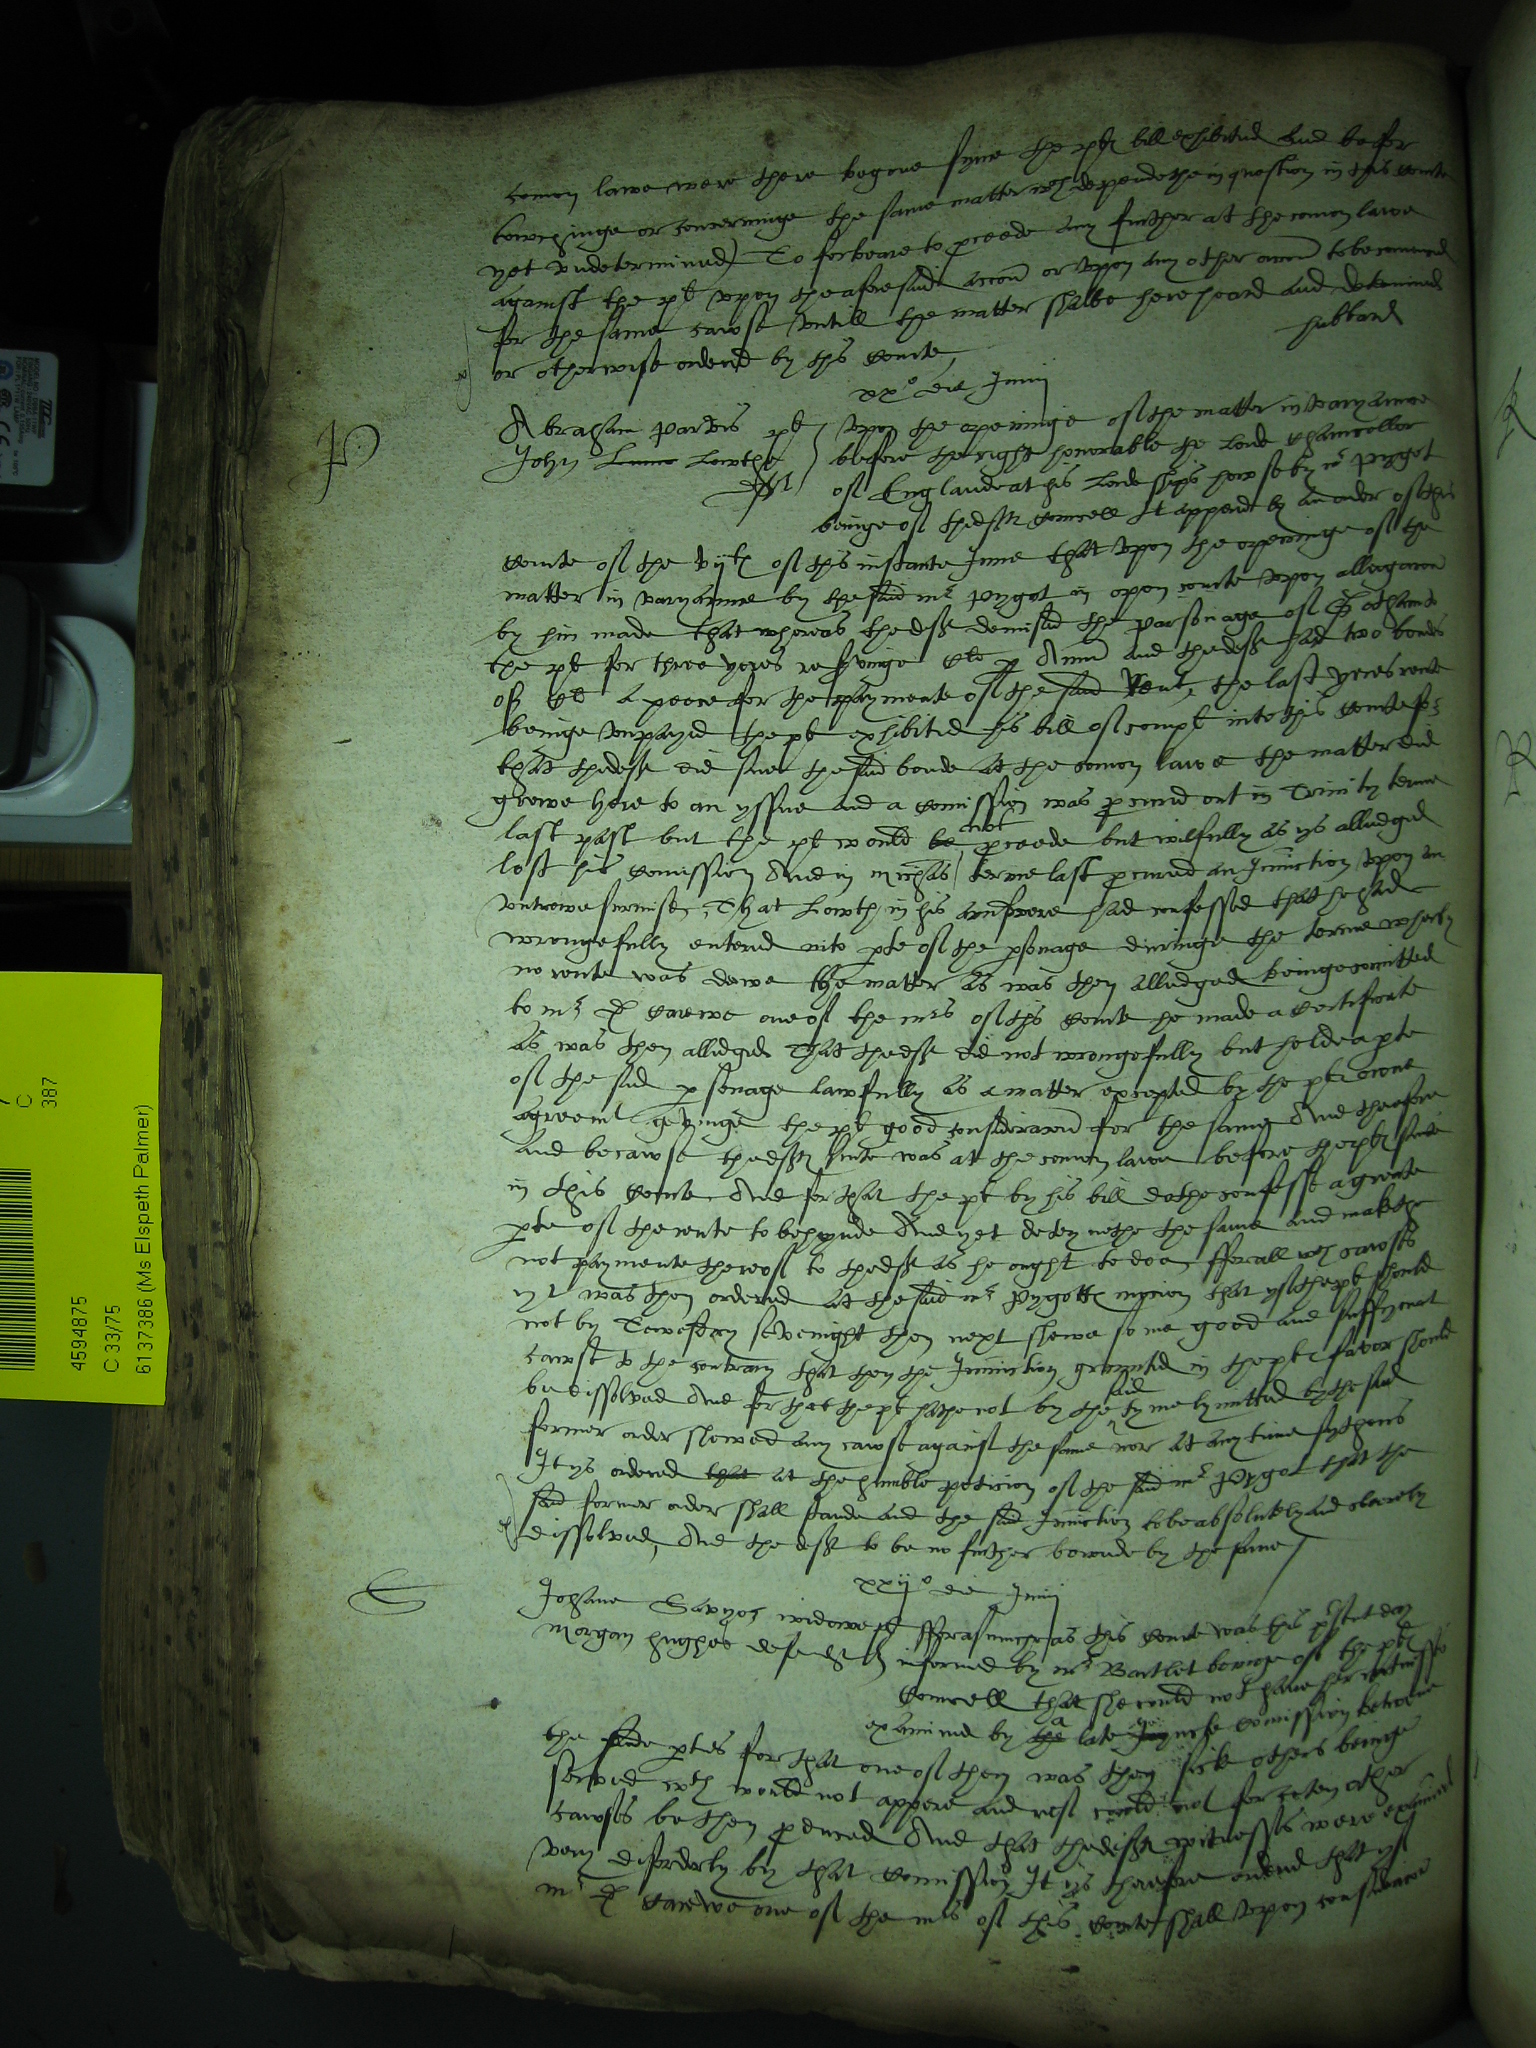 comon lawe were there begone synce the plts bill exhibited and before
towchinge or concerninge the same matter wch dependethe in question in this Courte
yet undetermined) To forbeare to pceede any further at the comon lawe
against the plt upon the aforesaid accon or upon any other accon to be comenced
for the same cawse untill the matter shalbe here heard and determined
or otherwise ordered by this Courte
hubbard
xxo die Junij
Abraham plt upon the openinge of the matter in varyannce
John Lowthe before the right honorable the Lorde Chauncellor
deft of Englande at his Lordeships howse by mr Pygot
beinge of the defts Councell It appered by an order of this
Courte of the vijth of this instante June that upon the openinge of the
matter in varyannce by the said mr Pygot in open courte upon allegacon
by him made that whereas the deft demised the parsonage of
the plt for three yeres and the deft had two bonds
of a peece for the paymente of the said Rent, the last yeres rente
beinge unpayed the plt exhibited his bill of complt into this Courte for
that the deft did sue the said bonde at the comon lawe the matter did
growe here to an yssue and a Comission was pcured out in Trinity terme
last past but the plt would be not pceede but wilfully as ys alledged
lost his Comission And in Michas terme last pcured an Iniunction upon an
untrewe surmise, That Lowth in his aunswere had confessed that he had
wrongefully entered into pte of the psonage duringe the terme wherby
no rente was dewe the matter as was then alledged beinge comitted
to mr D Carewe one of the mrs of this Courte he made a Certificate
as was then alledged That the deft did not wrongefully but holde a pte
of the said psonage lawfully as a matter excepted by the plts owne
agreemt gevinge the plt good consideracon for the same And therefore
And becawse the defts suite was at the comon lawe before the plts suite
in this Courte And for that the plt by his bill dothe confesse a greate
pte of the rente to be hynde And yet deteynethe the same and makethe
not paymente thereof to the deft as he ought to doe ffor all wch cawses
yt was then ordered at the said mr Pygotts mocion that yf the plt should
not by sevenight then next shewe some good and suffycient
cawse to the contrary that then the Iniunction graunted in the plts favor should
be dissolved And for that the plt hathe not by the said tyme lymitted by the said
former order shewed any cawse against the same nor at any time sythens
It ys ordered that at the humble peticion of the said mr Pygot that the
said former order shall stande and the said Iniunction to be absolutely and clerely
dissolved, And the deft to be no further bownde by the same
xxijo die Junij
Johane widowe plt fforasmuch as this Courte was this psent day
Morgan hughes defendt informed by mr Bartlet beinge of the plts
Councell that she could not have her witnesses
examined by the a late Comission betwene
the saide pties for that one of them was then sick others beinge
served wch would not appere and rest could not for certen other
cawses be then pduced And that the defts witnesses were examined
very disorderly by that Comission It ys therefore ordered that yf
mr D Carewe one of the mrs of this Courte shall upon consideracon
4594875
C 33/75
6137386 (Ms Elspeth Palmer)
C
387